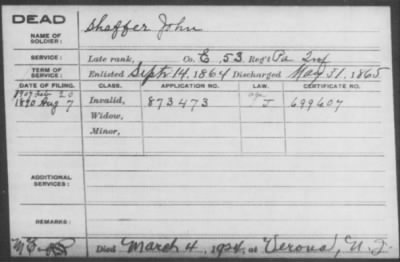 DEAD
NAME OF SOLDIER: Shaffer John
SERVICE: Late rank, Co. E, 53 Reg't Pa Inf
TERM OF SERVICE: Enlisted Sept. 14, 1864 Discharged May 31, 1865
DATE OF FILING. CLASS. APPLICATION NO. LAW. CERTIFICATE NO.
1907 Feb 20
1890 Aug 7 Invalid, 873473 J 699607
Widow,
Minor,
ADDITIONAL SERVICES:
REMARKS:
Died March 4, 1924, at Verona, N.J.